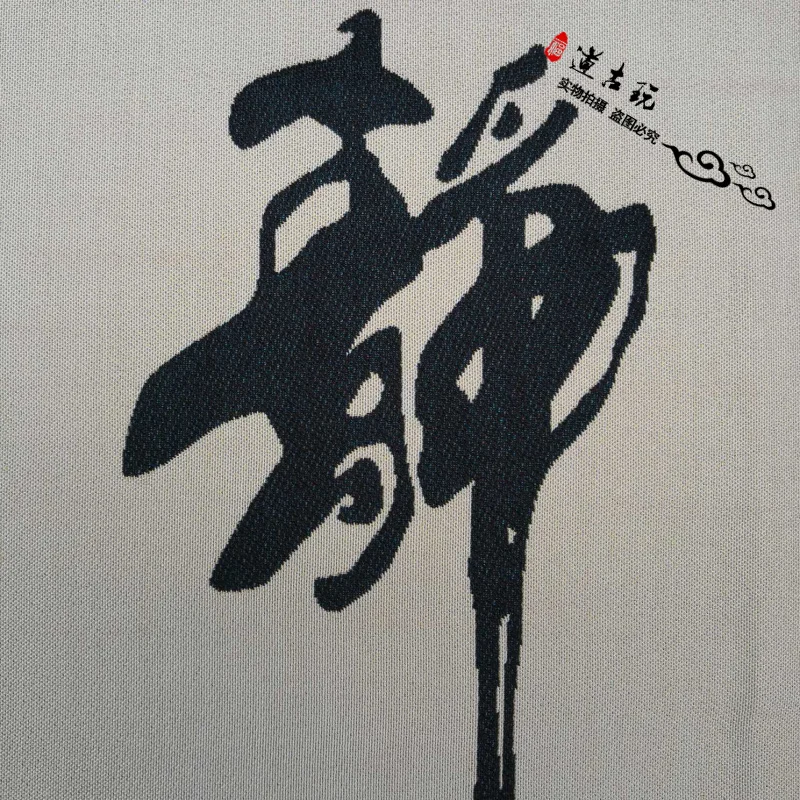 静
福
道古玩
实物拍摄 盗图必究